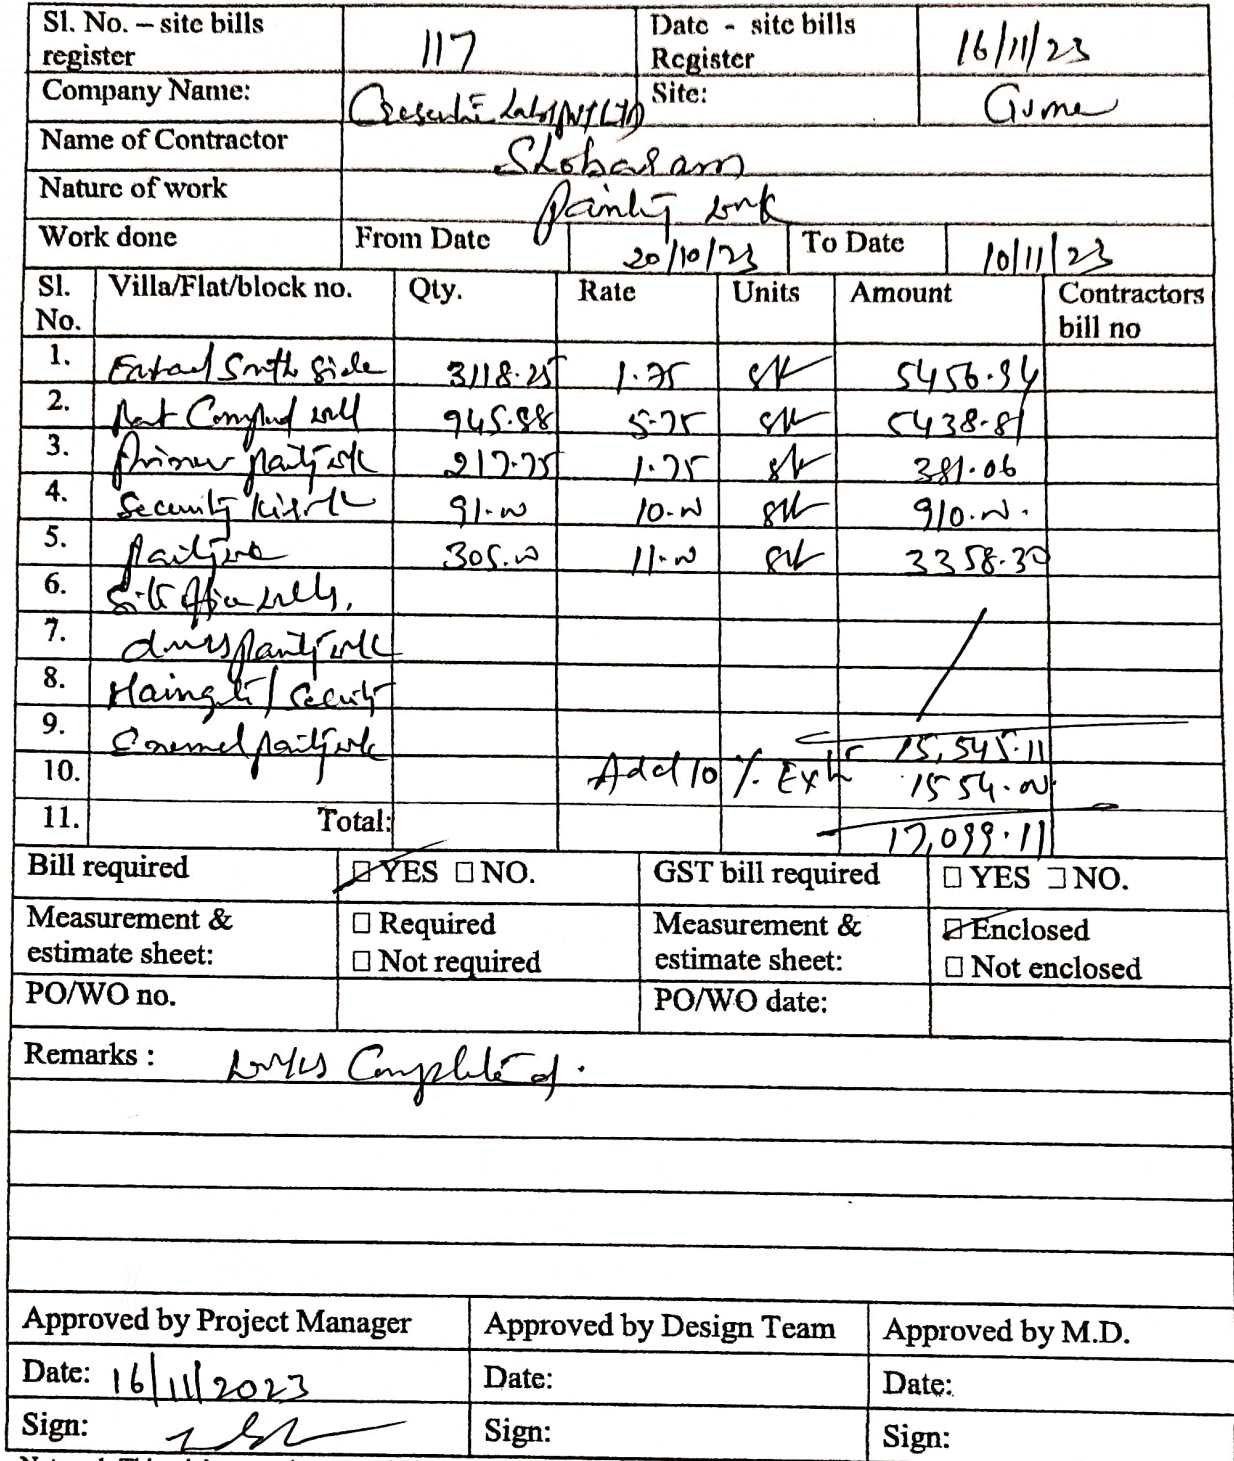 Sl. No. – site bills register 117 Date - site bills Register 16/11/23
Company Name: Labs Pvt LTD Site:
Name of Contractor Shobaram
Nature of work Painting work
Work done From Date 20/10/23 To Date 10/11/23
Sl. No. Villa/Flat/block no. Qty. Rate Units Amount Contractors bill no
1. South Side 3118.25 1.75 5456.94
2. Compound wall 945.88 5.75 5438.81
3. Primer 217.75 1.75 381.06
4. Security 91.00 10.00 910.00.
5. 305.00 11.00 3358.30
6. office walls,
7.
8. Security
9. 15,545.11
10. Add 10 % Extr 1554.00
11. Total: 17,099.11
Bill required YES NO. GST bill required YES NO.
Measurement & estimate sheet: Required Measurement & estimate sheet: Enclosed
Not required Not enclosed
PO/WO no. PO/WO date:
Remarks : works Completed.
Approved by Project Manager Approved by Design Team Approved by M.D.
Date: 16/11/2023 Date: Date:
Sign: Sign: Sign: